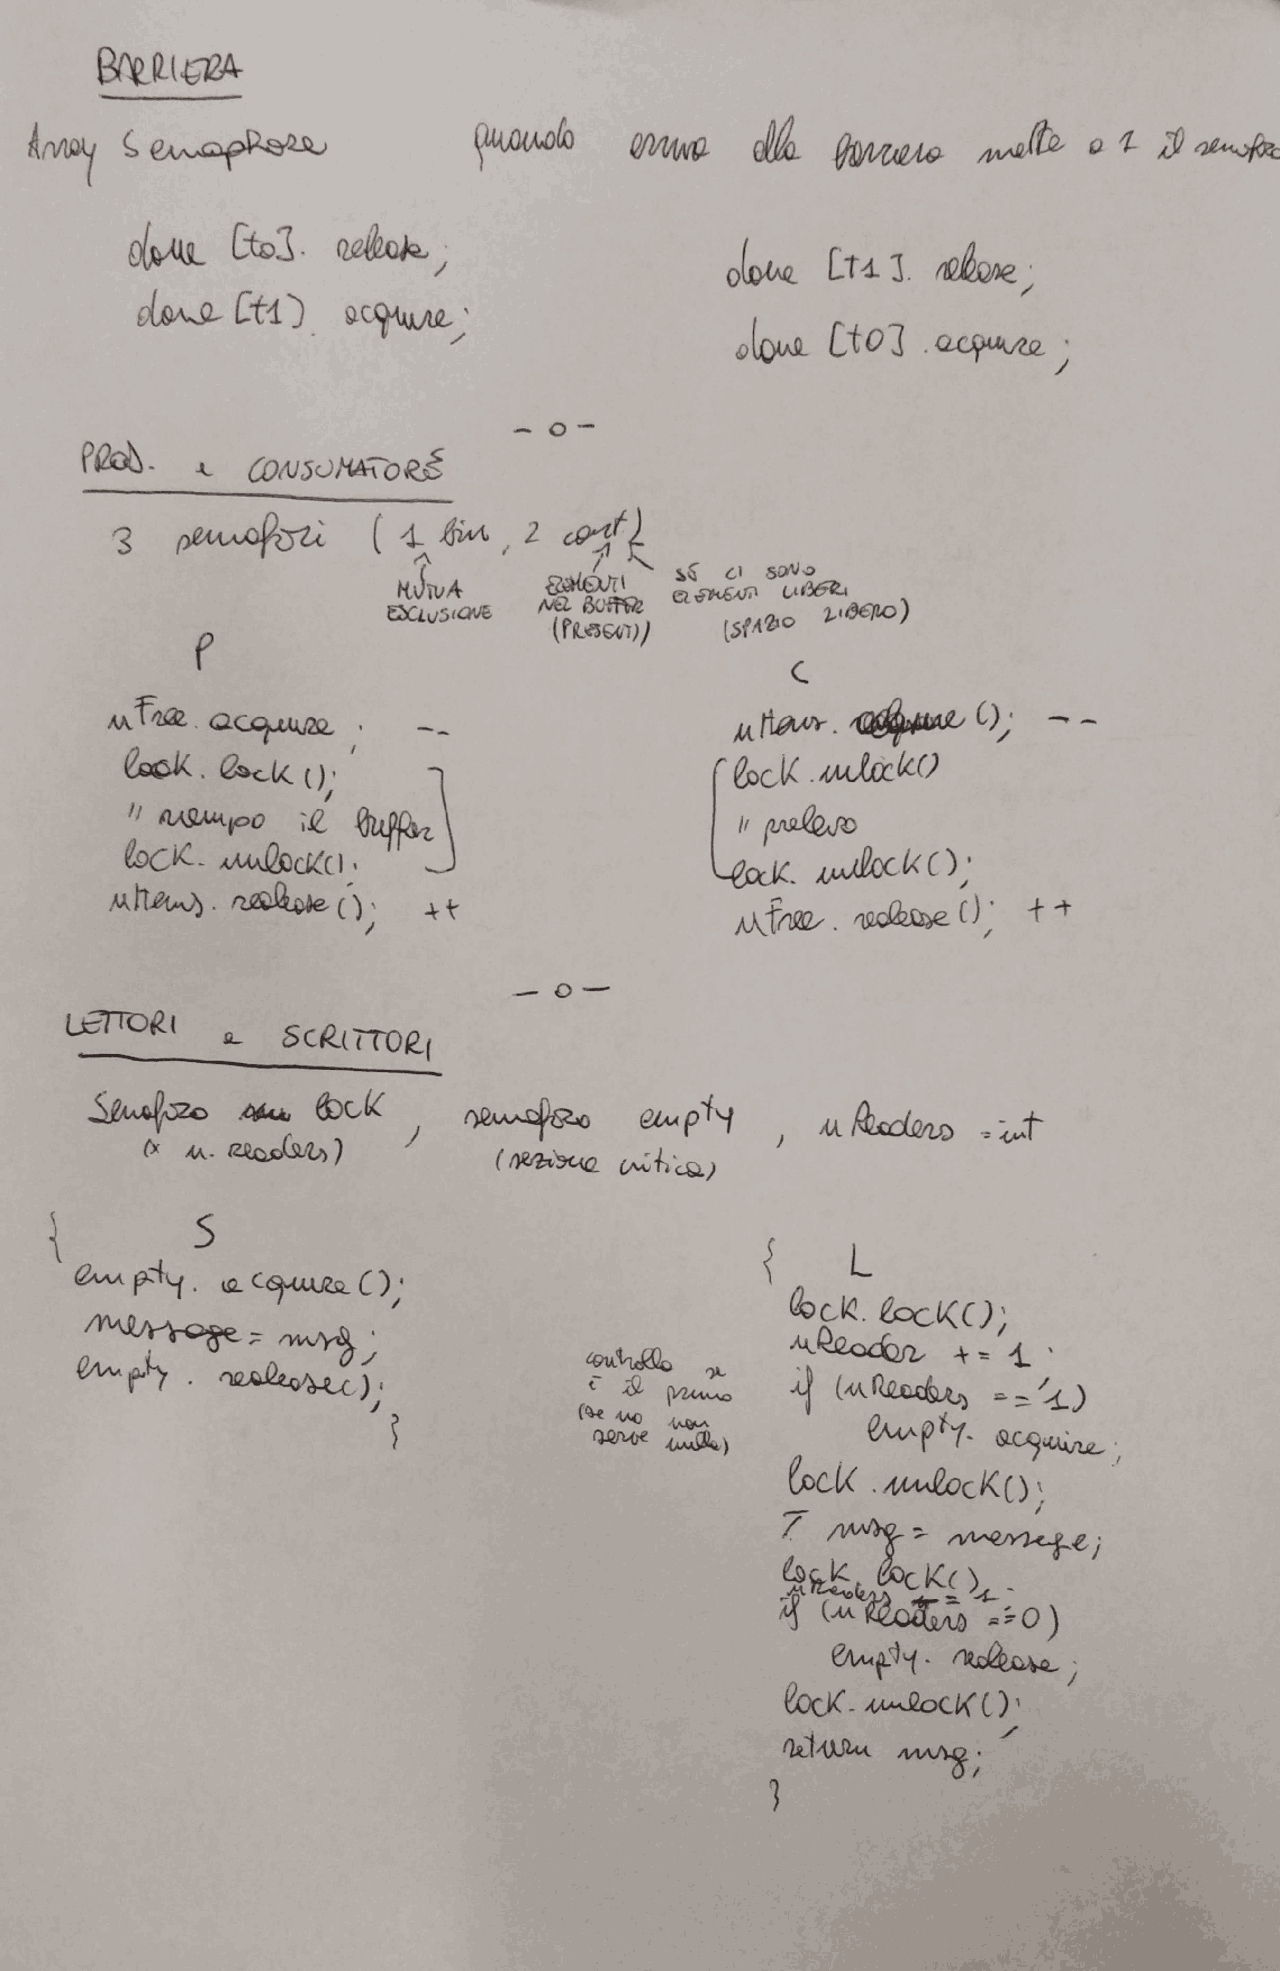 BARRIERA
Array Semaphore quando arriva alla barriera mette a 1 il semaforo
done [t0]. release;
done [t1]. acquire;
done [t1]. release;
done [t0]. acquire;
- o -
PROD. e CONSUMATORE
3 semafori (1 bin, 2 cont)
MUTUA ESCLUSIONE
ELEMENTI NEL BUFFER (PRESENTI)
SE CI SONO ELEMENTI LIBERI (SPAZIO LIBERO)
P
nFree. acquire ; --
lock. lock ();
" riempo il buffer
lock. unlock();
nItems. release (); ++
C
nItems. acquire (); --
lock. unlock()
" prelevo
lock. unlock();
nFree. release (); ++
- o -
LETTORI e SCRITTORI
Semaforo lock , semaforo empty , nReaders = int
(x n. readers) (sezione critica)
{ S
empty. acquire();
message = msg;
empty. release();
}
controllo se
è il primo
(se no non
serve nulla)
{ L
lock. lock();
nReader += 1;
if (nReaders == 1)
empty. acquire;
lock. unlock();
T msg = message;
lock. lock()
nReaders -= 1;
if (nReaders == 0)
empty. release;
lock. unlock();
return msg;
}